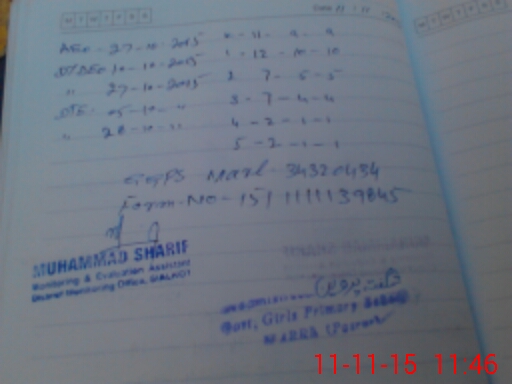 M T W T F S S
AEO - 27-10-2015
DY DEO 10-10-2015
" 27-10-2015
DTE - 05-10- "
" 28-10-11
K - 11 - 9 - 9
1 - 12 - 10 - 10
2 - 7 - 5 - 5
3 - 7 - 4 - 4
4 - 2 - 1 - 1
5 - 2 - 1 - 1
GGPS Marl - 34320434
Form-NO - 151111139845
MUHAMMAD SHARIF
Monitoring & Evaluation Assistant
District Monitoring Office, SIALKOT
Govt, Girls Primary School
11-11-15 11:46